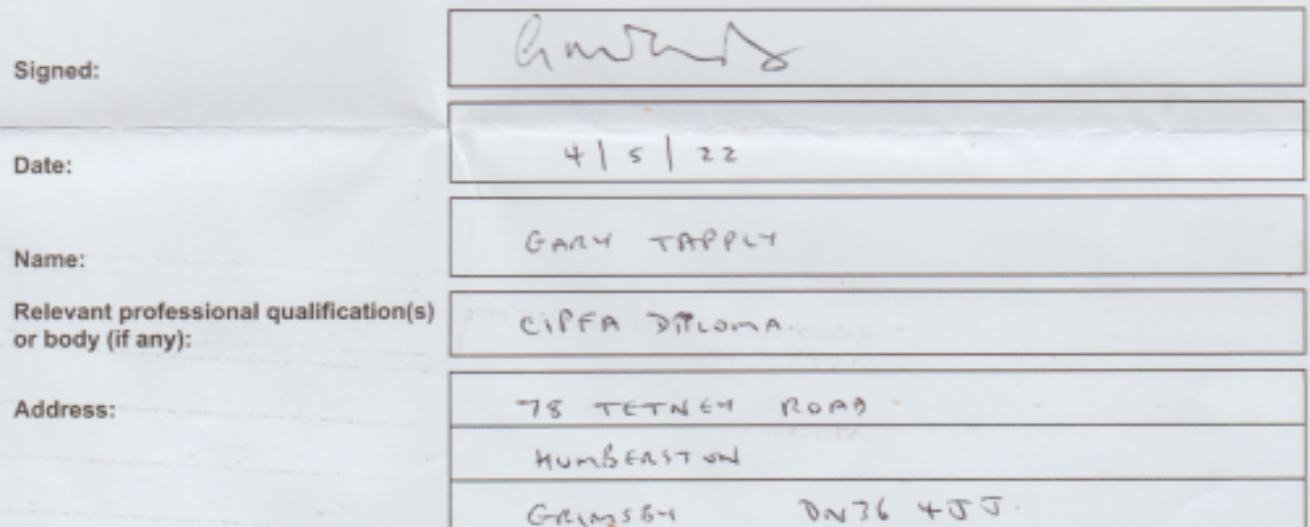 Signed:
Date: 4/5/22
Name: GARY TAPPLY
Relevant professional qualification(s)
or body (if any): CIPFA DIPLOMA
Address: 78 TETNEY ROAD
HUMBERSTON
GRIMSBY DN36 4JJ.